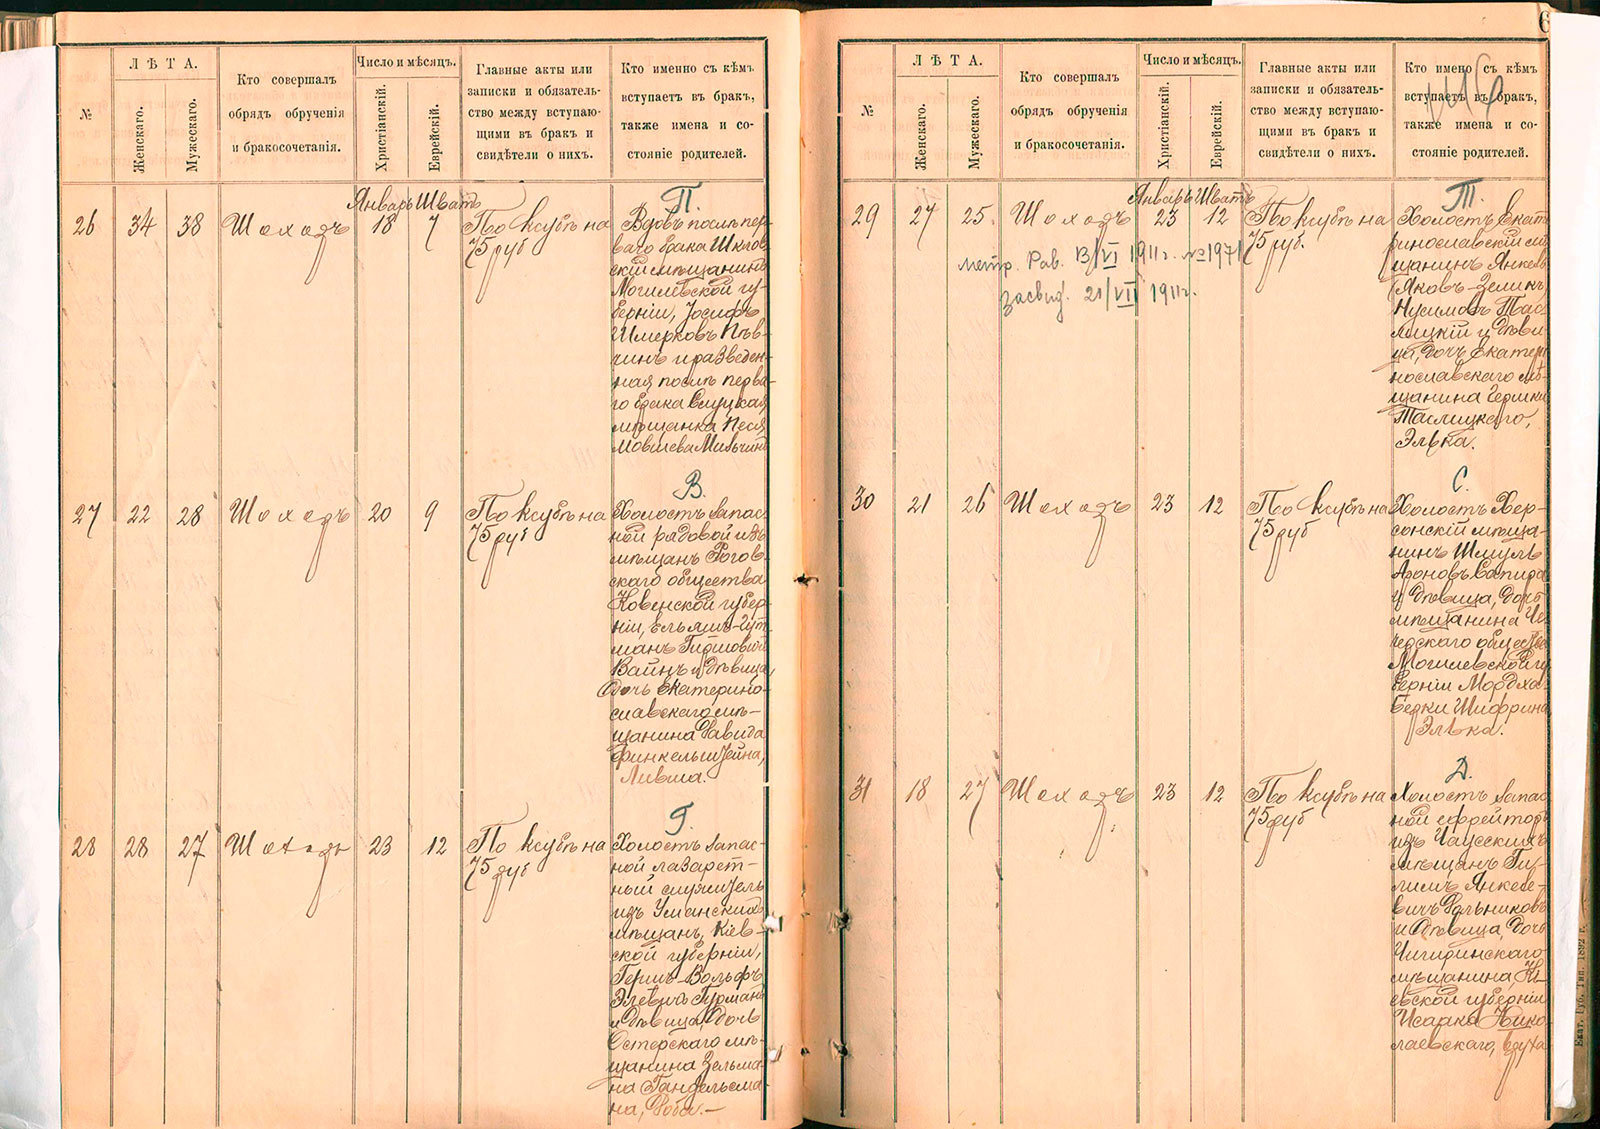 №
ЛѢТА.
Женскаго.
Мужескаго.
Кто совершалъ
обрядъ обрученія
и бракосочетанія.
Число и мѣсяцъ.
Христіанскій.
Еврейскій.
Главные акты или
записки и обязатель-
ство между вступаю-
щими въ бракъ и
свидѣтели о нихъ.
Кто именно съ кѣмъ
вступаетъ въ бракъ,
также имена и со-
стояніе родителей.
Январь Шватъ
26 34 38 Шоходъ 18 7 По ксубѣ на
75 руб
П.
Вдовъ послѣ пер-
ваго брака Шклов
скій мѣщанинъ
Могилевской гу-
берніи, Іосифъ
Шмерковъ Пѣв-
чинъ и разведен-
ная послѣ перва-
го брака Слуцкая
мѣщанка Песя
Мовшева Мильчинъ
27 22 28 Шоходъ 20 9 По ксубѣ на
75 руб
В.
Холостъ запас-
ной рядовой изъ
мѣщанъ Рогов-
скаго общества
Ковенской губер-
ніи, Ельяшъ-Гут-
манъ Гиршовичъ
Вайнъ и дѣвица,
дочь Екатерино-
славскаго мѣ-
щанина Давида
Финкельштейна,
Ливша.
28 28 27 Шоходъ 23 12 По ксубѣ на
75 руб
Г.
Холостъ запас-
ной лазарет-
ный служитель
изъ Уманскихъ
мѣщанъ, Кіев-
ской губерніи,
Гершъ-Вольфъ
Элевичъ Гурманъ
и дѣвица, дочь
Остерскаго мѣ-
щанина Зельма-
на Гандельсма-
на, Роба.—
6
№
ЛѢТА.
Женскаго.
Мужескаго.
Кто совершалъ
обрядъ обрученія
и бракосочетанія.
Число и мѣсяцъ.
Христіанскій.
Еврейскій.
Главные акты или
записки и обязатель-
ство между вступаю-
щими въ бракъ и
свидѣтели о нихъ.
Кто имено съ кѣмъ
вступаетъ въ бракъ,
также имена и со-
стояніе родителей.
Январь Шватъ
29 27 25. Шоходъ 23 12 По ксубѣ на
75 руб.
метр. Рав. 13/VI 1911г. №1971
засвид. 21/VII 1911г.
Т.
Холостъ, Екате
ринославскій мѣ
щанинъ Янкель
(Яковъ-Зелик
Нусимовъ Таб
лицкій и дѣви
ца, дочь Екатери
нославскаго мѣ-
щанина Гершки
Элька.
30 21 26 Шоходъ 23 12 По ксубѣ на
75 руб
С.
Холостъ Хер-
сонскій мѣща-
нинъ Шмуль
Ароновъ Сапира
и дѣвица, дочь
мѣщанина Че
черскаго общества
Могилевской гу
берніи Мордха-
Берки Шифрина
Элька.
31 18 27 Шоходъ 23 12 По ксубѣ на
75 руб
Д.
Холостъ запас
ной ефрейторъ
изъ Чаусскихъ
мѣщанъ Ги-
лимъ Янкеле-
вичъ Дольниковъ
и дѣвица, дочь
Чигиринскаго
мѣщанина, Кі-
евской губерніи
Исаака Нико
лаевскаго,
Екат. Губ. Тип. 1892 г.